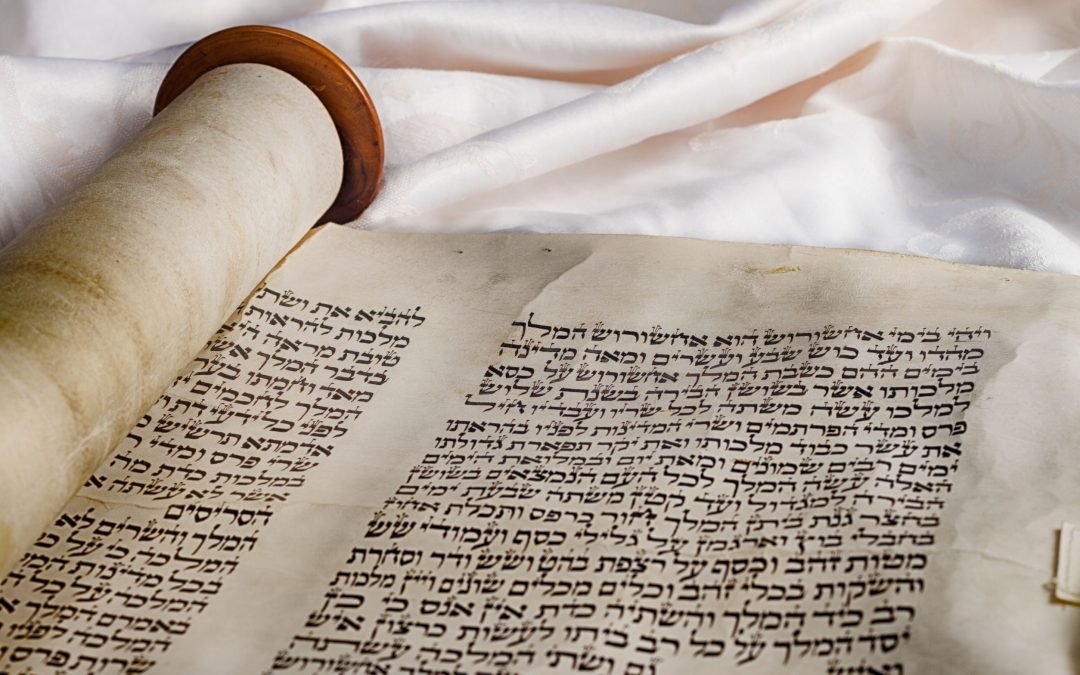 ויהי בימי אחשורוש הוא אחשורוש המלך
מהדו ועד כוש שבע ועשרים ומאה מדינה
בימים ההם כשבת המלך אחשורוש על כסא
מלכותו אשר בשושן הבירה בשנת שלוש
למלכו עשה משתה לכל שריו ועבדיו חיל
פרס ומדי הפרתמים ושרי המדינות לפניו בהראתו
את עשר כבוד מלכותו ואת יקר תפארת גדולתו
ימים רבים שמונים ומאת יום ובמלואת הימים
האלה עשה המלך לכל העם הנמצאים בשושן
הבירה למגדול ועד קטן משתה שבעת ימים
בחצר גנת ביתן המלך חור כרפס ותכלת אחוז
בחבלי בוץ וארגמן על גלילי כסף ועמודי שש
מטות זהב וכסף על רצפת בהט ושש ודר וסחרת
והשקות בכלי זהב וכלים מכלים שונים ויין מלכות
רב כיד המלך והשתיה כדת אין אנס כי כן
יסד המלך על כל רב ביתו לעשות כרצון איש
ואיש גם ושתי המלכה עשתה
למלך אחשורוש
להביא את ושתי
מלכות להראות
טובת מראה היא
בדבר המלך אשר
מאד וחמתו בערה
המלך לחכמים
לפני כל ידעי דת
אדמתא תרשיש
שרי פרס ומדי
במלכות כדת מה
אשר לא עשתה
הסריסים
המלך והשרים לא
המלכה כי על כל
בכל מדינות המלך
המלכה על כל
באמרם המלך
המלכה לפניו
שרות פרס